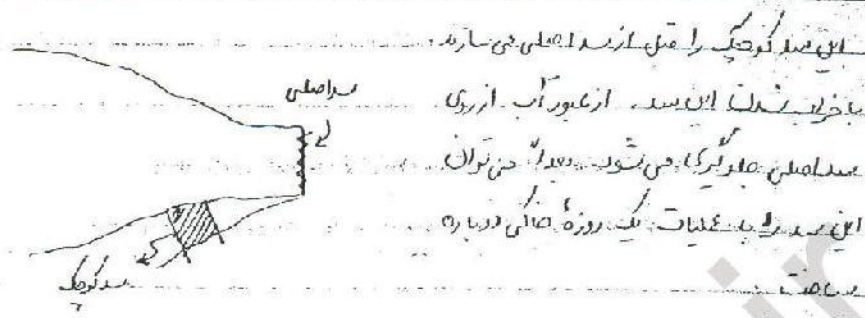 این سد کوچک را قبل از سد اصلی می سازند.
با خراب شدن این سد، از عبور آب از روی
سد اصلی جلوگیری می شود. بعداً می توان
این سد را با عملیات یک روزهٔ خاکی دوباره
ساخت.
سد اصلی
سد کوچک